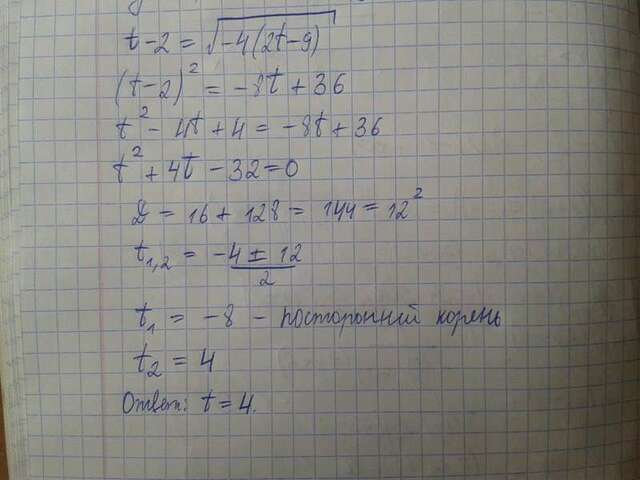 t-2 = √-4(2t-9)
(t-2)² = -8t+36
t² - 4t + 4 = -8t + 36
t² + 4t - 32 = 0
D = 16 + 128 = 144 = 12²
t₁,₂ = (-4 ± 12)/2
t₁ = -8 - посторонний корень
t₂ = 4
Ответ: t = 4.